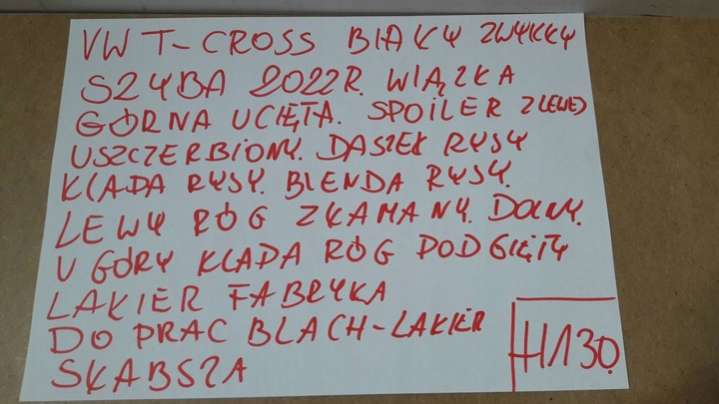 VW T-CROSS BIAŁY ZWYKŁY
SZYBA 2022R. WIĄZKA
GÓRNA UCIĘTA. SPOILER Z LEWEJ
USZCZERBIONY. DASZEK RYSY
KLAPA RYSY. BLENDA RYSY.
LEWY RÓG ZŁAMANY. DOLNY.
U GÓRY KLAPA RÓG PODGIĘTY
LAKIER FABRYKA
DO PRAC BLACH-LAKIER
SŁABSZA
H130